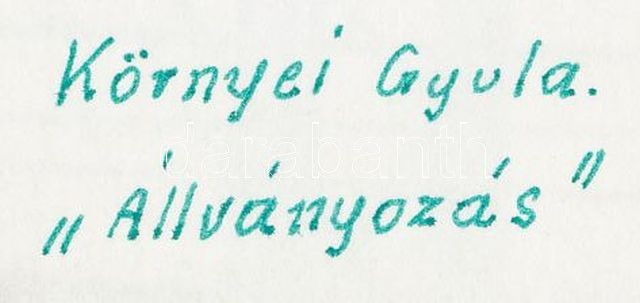 Környei Gyula.
„Állványozás"
darabanth